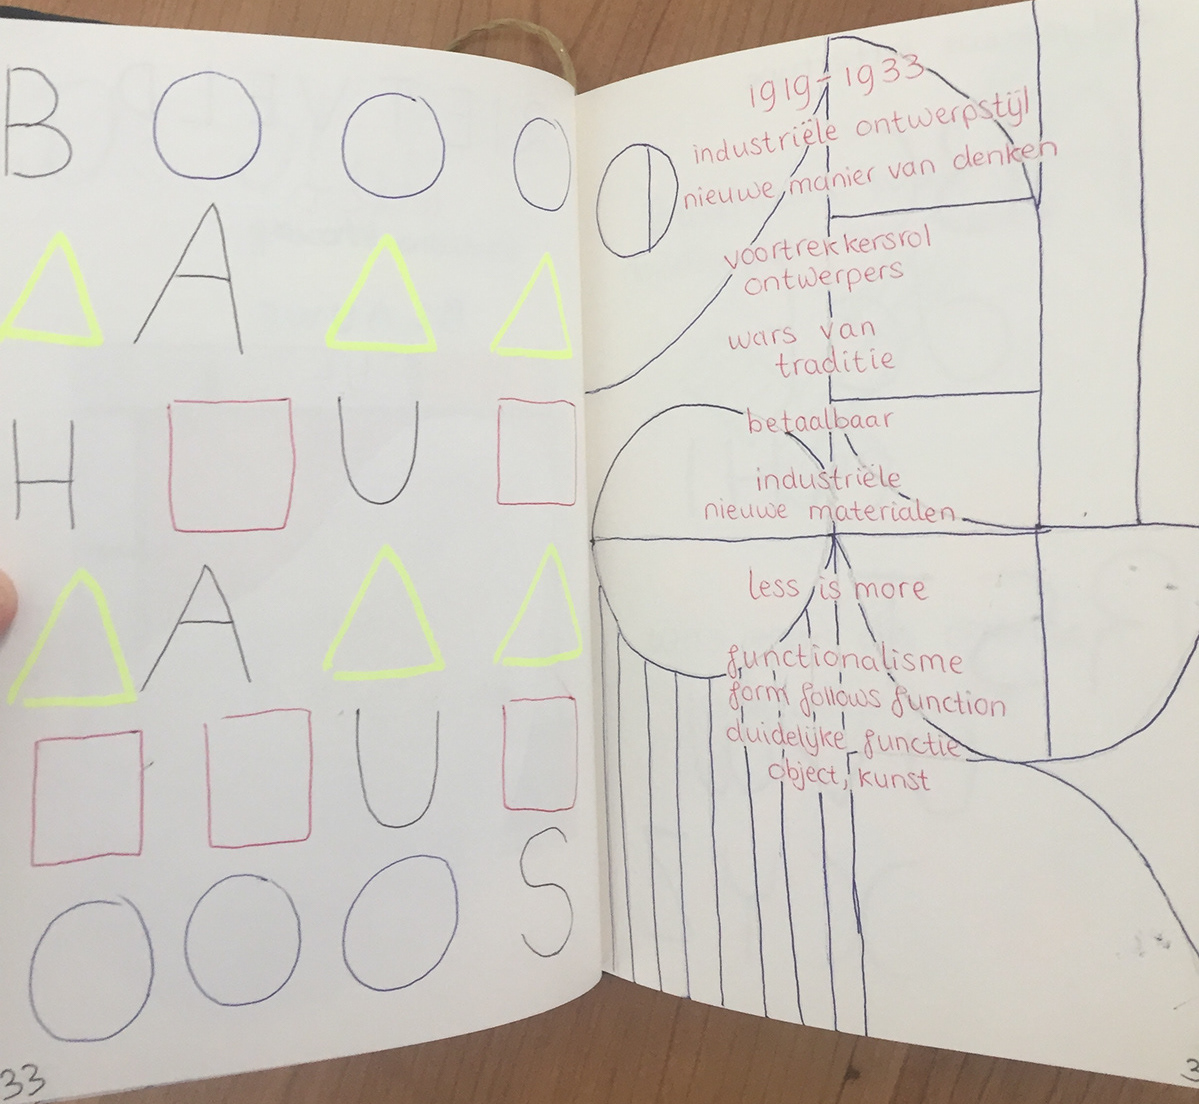 B
A
H U
A
U
S
33
1919-1933
industriële ontwerpstijl
nieuwe manier van denken
voortrekkersrol
ontwerpers
wars van
traditie
betaalbaar
industriële
nieuwe materialen
less is more
functionalisme
form follows function
duidelijke functie
object, kunst
3